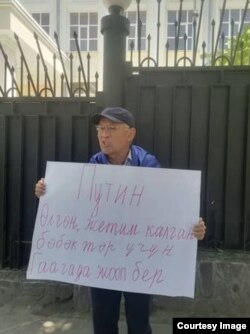 Путин
Өлгөн, жетим калган
бөбөктөр үчүн
Гаагада жооп бер
Courtesy Image